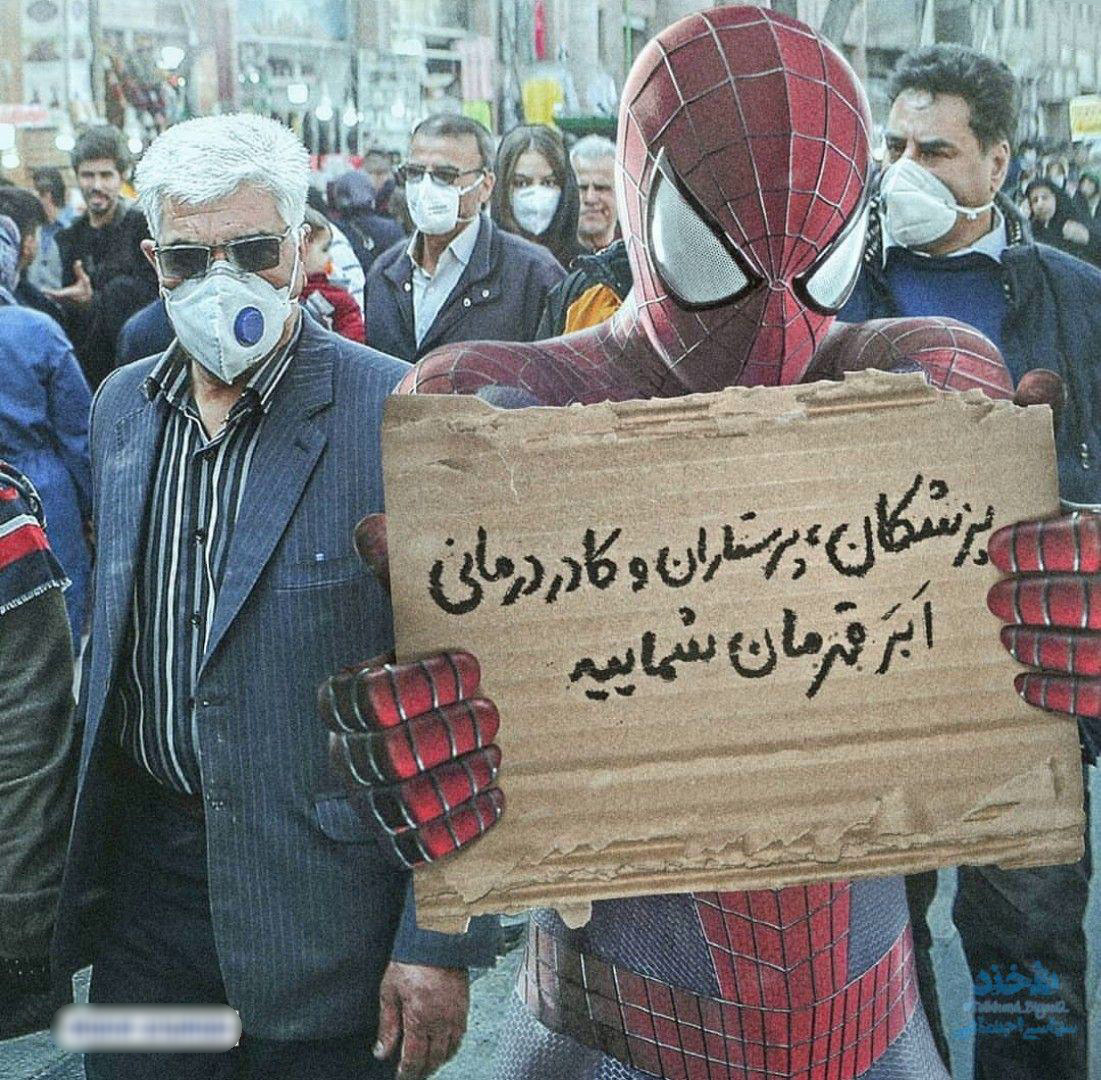 پزشکان، پرستاران و کادر درمانی
اَبَر قهرمان شمایید